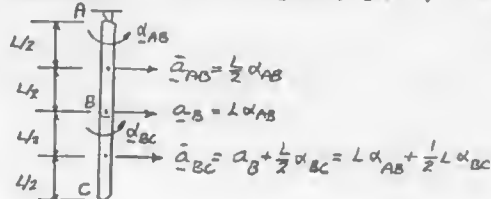 A
α_AB
L/2
ā_AB = L/2 α_AB
L/2
B
a_B = L α_AB
L/2
α_BC
ā_BC = a_B + L/2 α_BC = L α_AB + 1/2 L α_BC
L/2
C